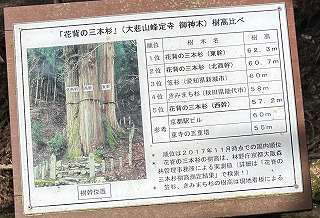 「花背の三本杉」（大悲山峰定寺 御神木）樹高比べ
順位 樹木名 樹高
1位 花背の三本杉（東幹） 62.3m
2位 花背の三本杉（北西幹） 60.7m
3位 笠杉（愛知県新城市） 60m
4位 きみまち杉（秋田県能代市） 58m
5位 花背の三本杉（西幹） 57.2m
参考 京都駅ビル 60m
東寺の五重塔 55m
樹幹位置
* 順位は2017年11月時点の国内順位
* 花背の三本杉の樹高は、林野庁京都大阪森
林管理事務所による実測値（詳細は「花背の
三本杉樹高測定結果」で検索！）
* 笠杉、きみまち杉の樹高は現地看板による